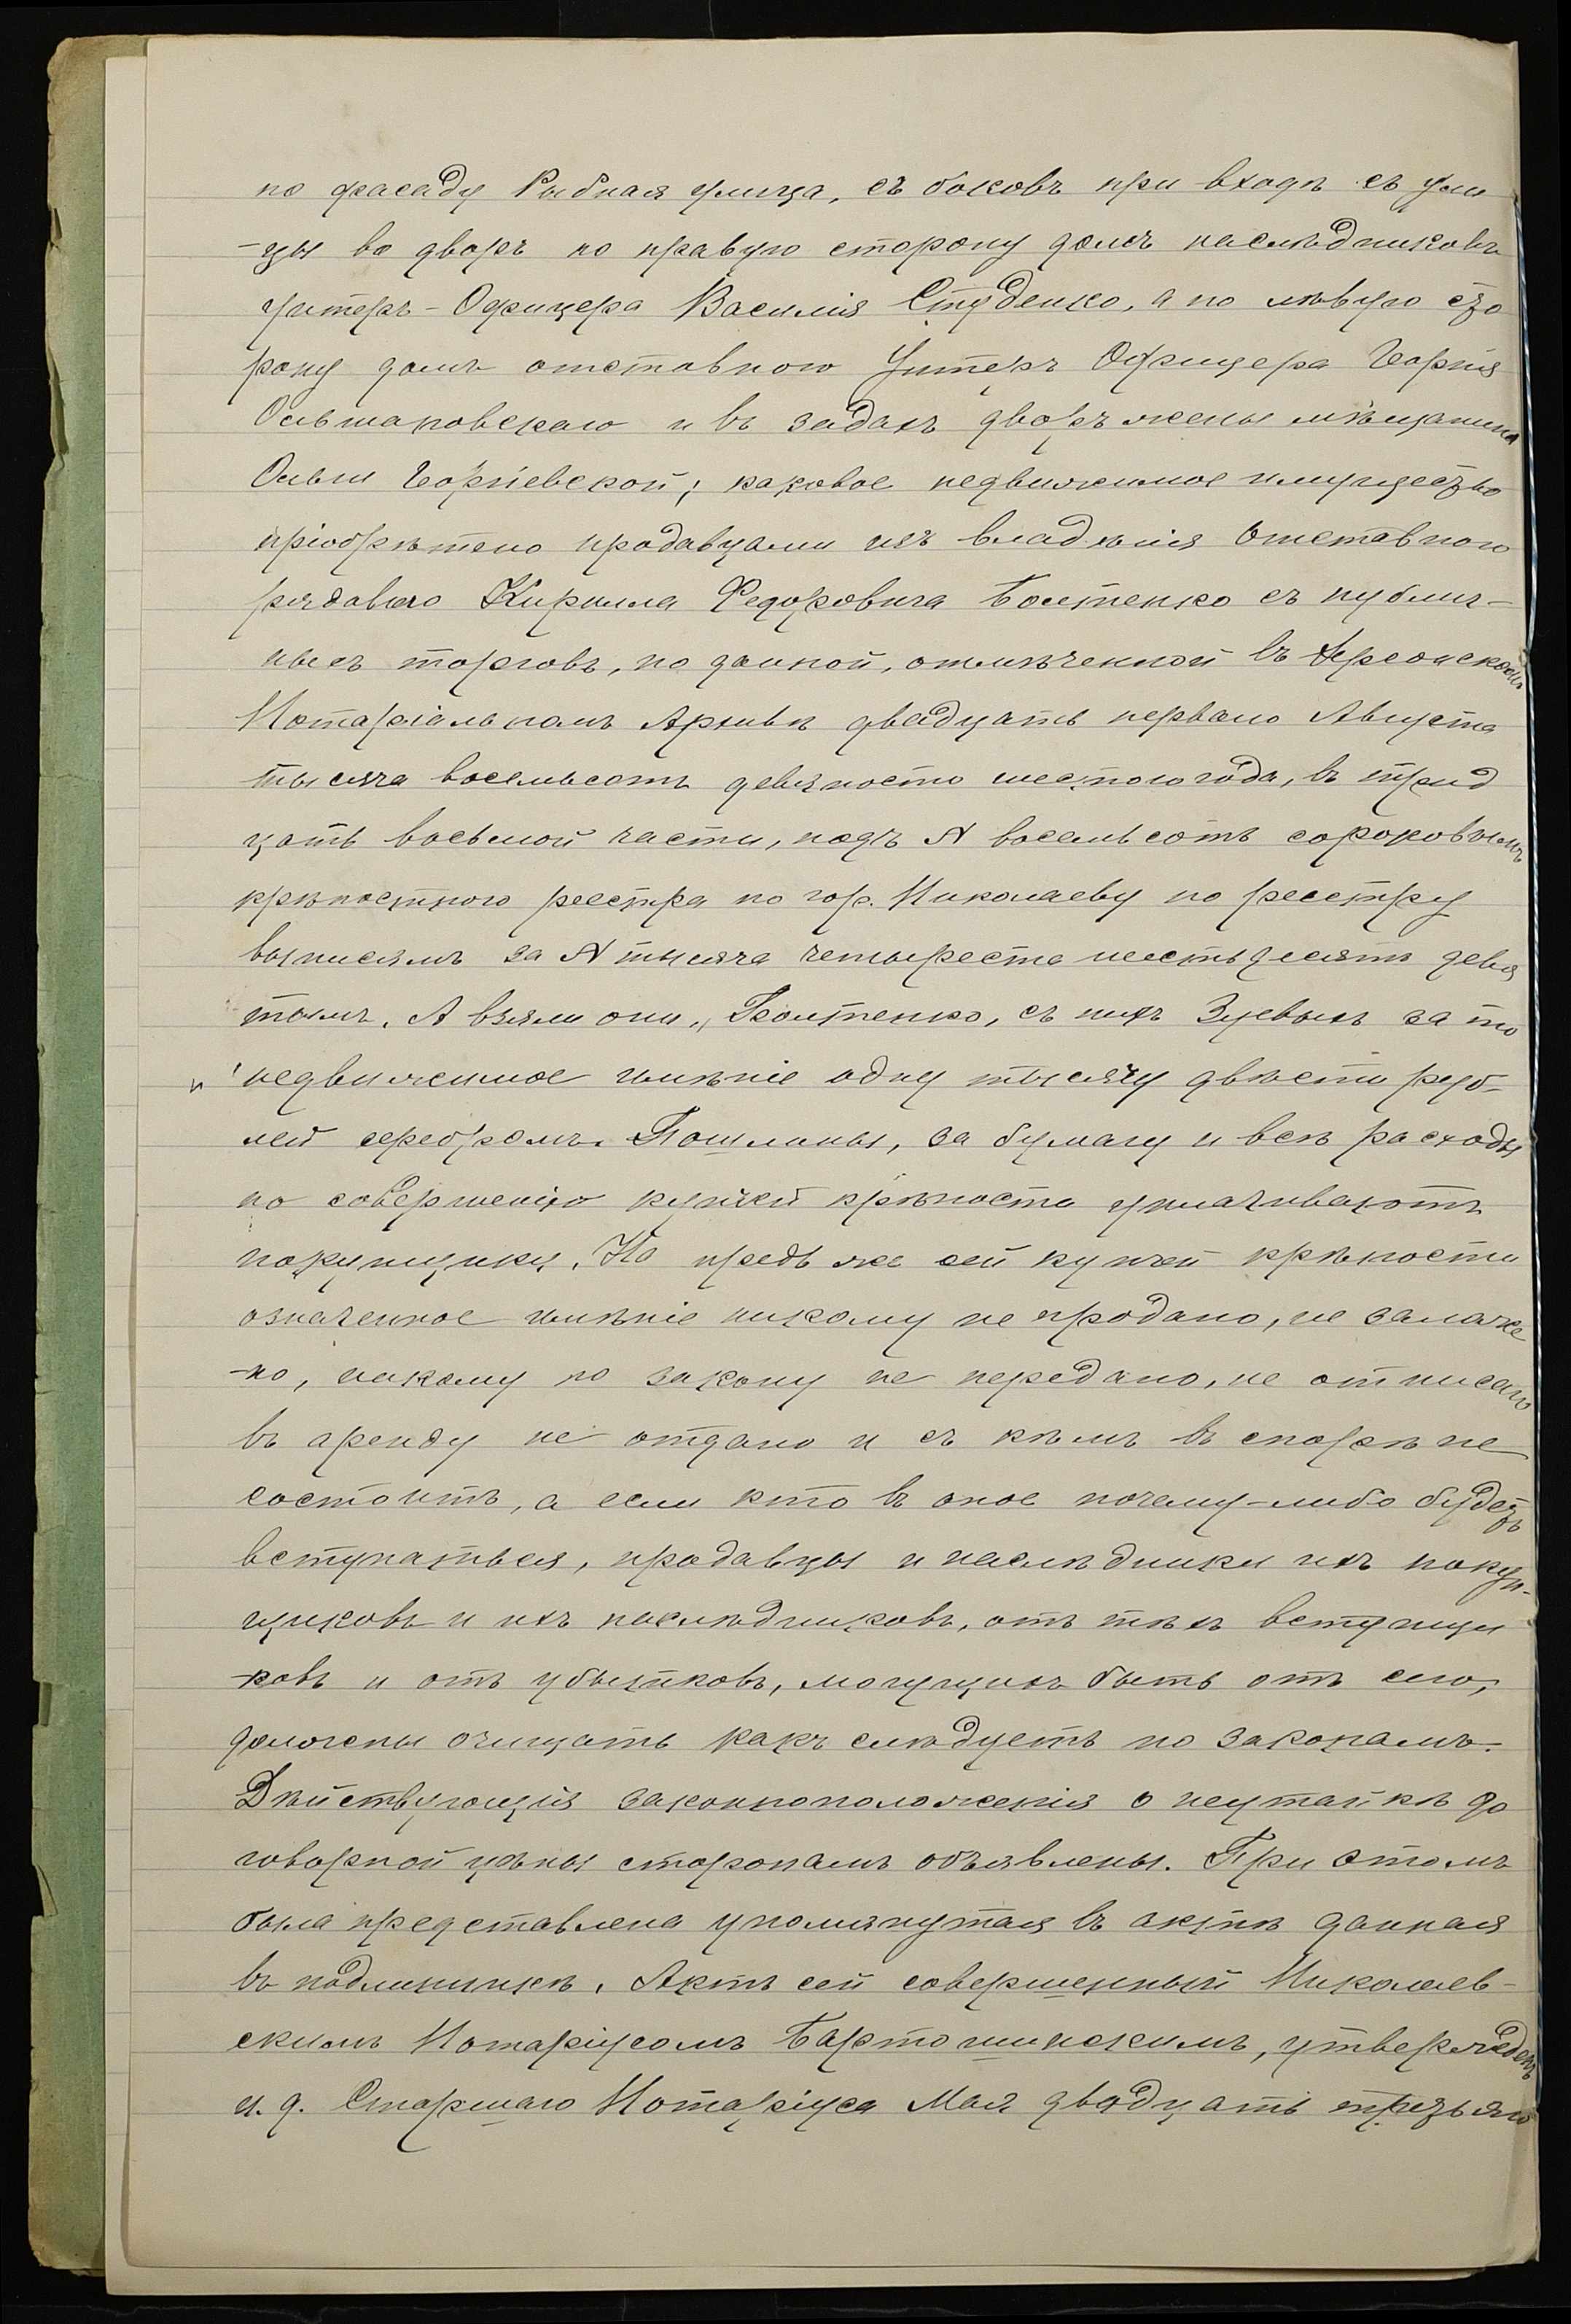 по фасаду Рыбная улица, съ боковъ при входѣ съ ули
-цы во дворъ по правую сторону домъ наслѣдниковъ
унтеръ-Офицера Василія Студенко, а по лѣвую сто
рону домъ отставного Унтеръ Офицера Георгія
Ольшановскаго и въ задахъ дворъ жены мѣщанина
Ольги Георгіевской; каковое недвижимое имущество
пріобрѣтено продавцами изъ владѣнія отставного
рядового Кирилла Федоровича Болтенко съ публич-
ныхъ торговъ, по данной, отмѣченной въ Херсонскомъ
Нотаріальномъ Архивѣ двадцать перваго Августа
тысяча восемьсотъ девяносто шестого года, въ трид
цать восьмой части, подъ N восемьсотъ сороковымъ
крѣпостного реестра по гор. Николаеву по реестру
выписямъ за N тысяча четыреста шестьдесятъ девя
тымъ. А взяли они, Болтенко, съ нихъ Зуевыхъ за то
недвижимое имѣніе одну тысячу двѣсти руб-
лей серебромъ. Пошлины, за бумагу и всѣ расходы
по совершенію купчей крѣпости уплачиваютъ
покупщики. На предь же сей купчей крѣпости
означенное имѣніе никому не продано, не заложе
-но, никому по закону не передано, не отписано
въ аренду не отдано и съ кѣмъ въ спорѣ не
состоитъ, а если кто въ оное почему-либо будетъ
вступаться, продавцы и наслѣдники ихъ покуп-
щиковъ и ихъ наслѣдниковъ, отъ тѣхъ вступщи
-ковъ и отъ убытковъ, могущихъ быть отъ сего,
должны очищать какъ слѣдуетъ по законамъ.
Дѣйствующія законноположенія о неутайкѣ до
говорной цѣны сторонамъ объявлены. При этомъ
была представлена упомянутая въ актѣ данная
въ подлинникѣ. Актъ сей совершенный Николаев-
скимъ Нотаріусомъ Бартошинскимъ, утвержденъ
и. д. Старшаго Нотаріуса Мая двадцать третьяго